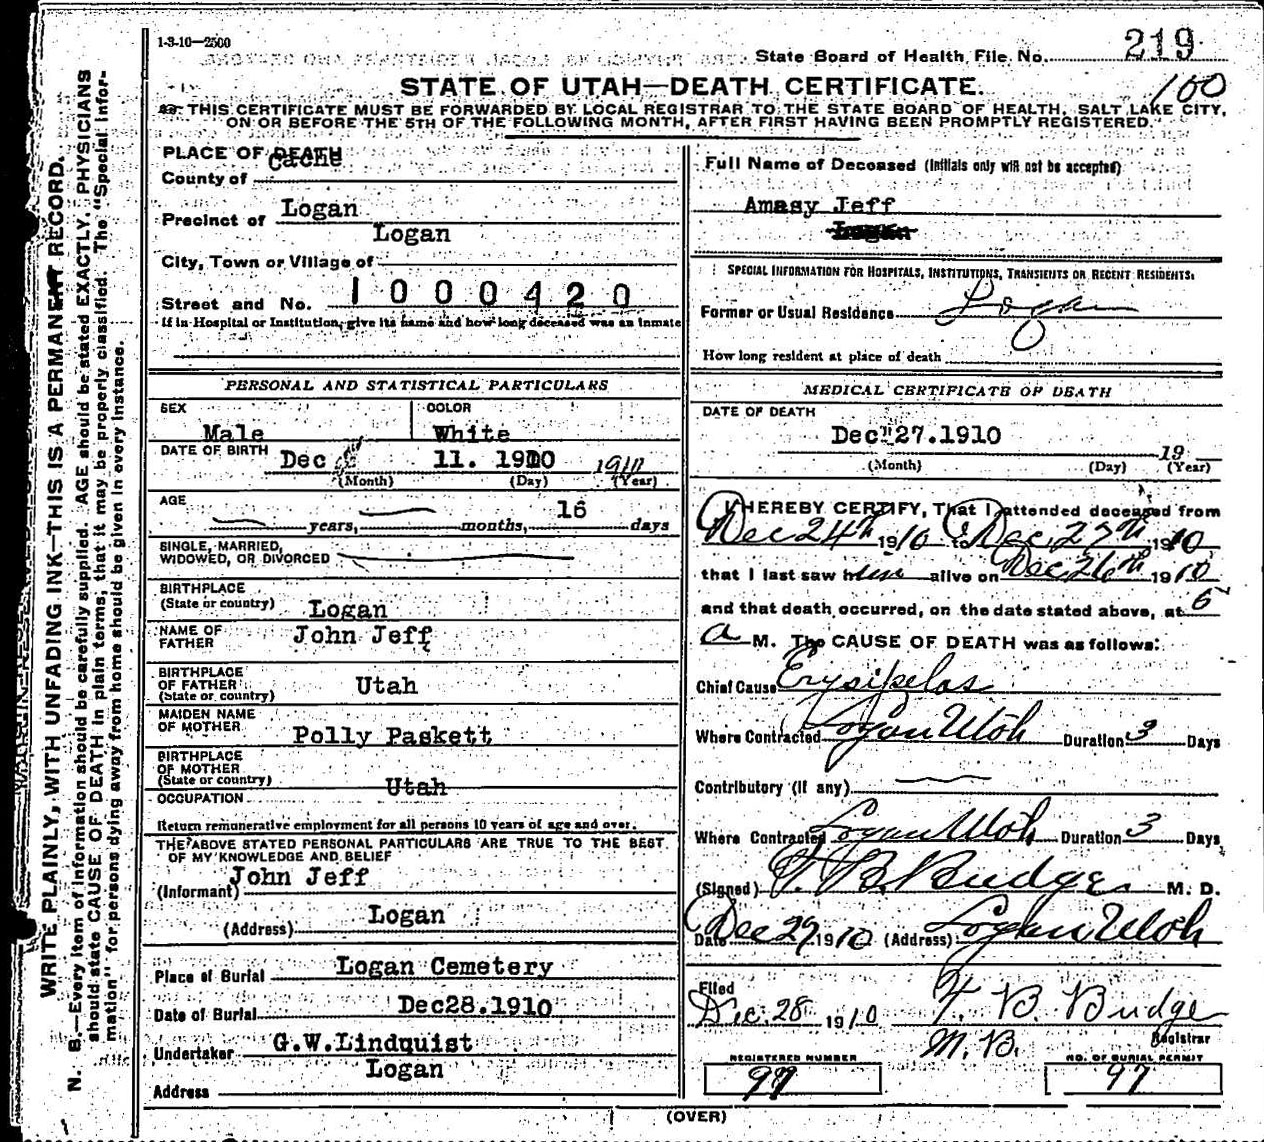 1-3-10—2500
State Board of Health File No. 219
STATE OF UTAH—DEATH CERTIFICATE.
100
THIS CERTIFICATE MUST BE FORWARDED BY LOCAL REGISTRAR TO THE STATE BOARD OF HEALTH, SALT LAKE CITY,
ON OR BEFORE THE 5TH OF THE FOLLOWING MONTH, AFTER FIRST HAVING BEEN PROMPTLY REGISTERED.
WRITE PLAINLY, WITH UNFADING INK—THIS IS A PERMANENT RECORD.
N. B.—Every item of information should be carefully supplied. AGE should be stated EXACTLY. PHYSICIANS
should state CAUSE OF DEATH in plain terms, that it may be properly classified. The "Special Infor-
mation" for persons dying away from home should be given in every instance.
PLACE OF DEATH
County of Cache
Precinct of Logan
City, Town or Village of Logan
Street and No. 1000420
If in Hospital or Institution, give its name and how long deceased was an inmate
Full Name of Deceased (Initials only will not be accepted)
Amasy Jeff
SPECIAL INFORMATION FOR HOSPITALS, INSTITUTIONS, TRANSIENTS OR RECENT RESIDENTS.
Former or Usual Residence Logan
How long resident at place of death
PERSONAL AND STATISTICAL PARTICULARS
SEX Male
COLOR White
DATE OF BIRTH Dec 11. 1910 1910
(Month) (Day) (Year)
AGE
— years, — months, 16 days
SINGLE, MARRIED,
WIDOWED, OR DIVORCED —
BIRTHPLACE
(State or country) Logan
NAME OF
FATHER John Jeff
BIRTHPLACE
OF FATHER
(State or country) Utah
MAIDEN NAME
OF MOTHER Polly Paskett
BIRTHPLACE
OF MOTHER
(State or country) Utah
OCCUPATION
Return remunerative employment for all persons 10 years of age and over.
THE ABOVE STATED PERSONAL PARTICULARS ARE TRUE TO THE BEST
OF MY KNOWLEDGE AND BELIEF
(Informant) John Jeff
(Address) Logan
Place of Burial Logan Cemetery
Date of Burial Dec28.1910
Undertaker G.W.Lindquist
Address Logan
MEDICAL CERTIFICATE OF DEATH
DATE OF DEATH
Dec"27.1910 19
(Month) (Day) (Year)
I HEREBY CERTIFY, That I attended deceased from
Dec 24th 1910 to Dec. 27th 1910
that I last saw him alive on Dec. 26th 1910
and that death occurred, on the date stated above, at 5
a M. The CAUSE OF DEATH was as follows:
Chief Cause Erysipelas
Where Contracted Logan Utah Duration 3 Days
Contributory (if any) —
Where Contracted Logan Utah Duration 3 Days
(Signed) T. B. Budge M. D.
Date Dec 27, 1910 (Address) Logan Utah
Filed
Dec. 28 1910 T. B. Budge
M.B. Registrar
REGISTERED NUMBER
97
NO. OF BURIAL PERMIT
97
(OVER)